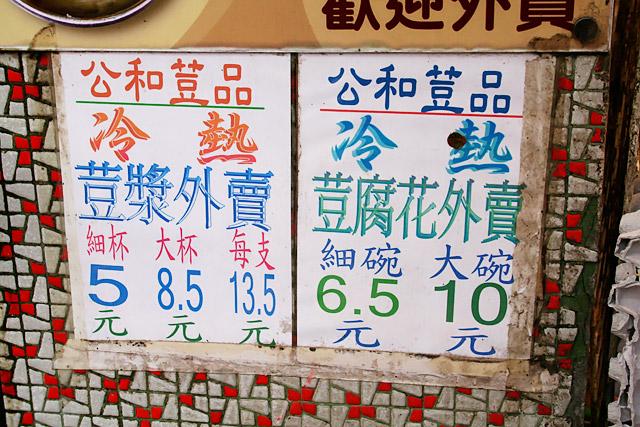 歡迎外賣
公和荳品
冷 熱
荳漿外賣
細杯 大杯 每支
5 8.5 13.5
元 元 元
公和荳品
冷 熱
荳腐花外賣
細碗 大碗
6.5 10
元 元